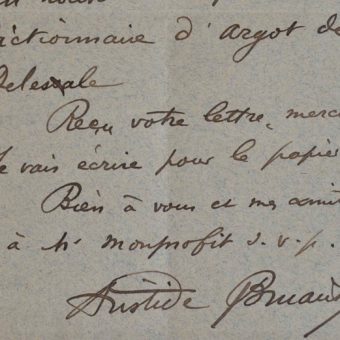 dictionnaire d'argot de
Delesale
Reçu votre lettre, merci
Je vais écrire pour le papier
Bien à vous et mes amit
à Mr monprofit s.v.p.
Aristide Bruant